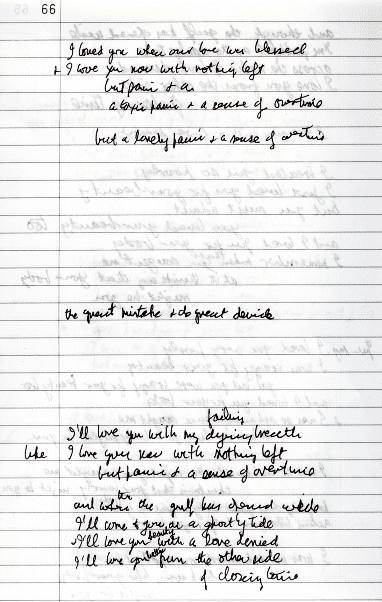 66
I loved you when our love was blessed
+ I love you now with nothing left
but panic & a
a toxic panic & a sense of overtime
but a lovely panic & a sense of overtime
the great mistake & do great
failing
I'll love you with my dying breath
like I love you now with nothing left
but panic & a sense of overtime
and when the gulf has opened wide
I'll come to you as a ghostly tide
I'll love your beauty with a love denied
I'll love you better from the other side
of closing time